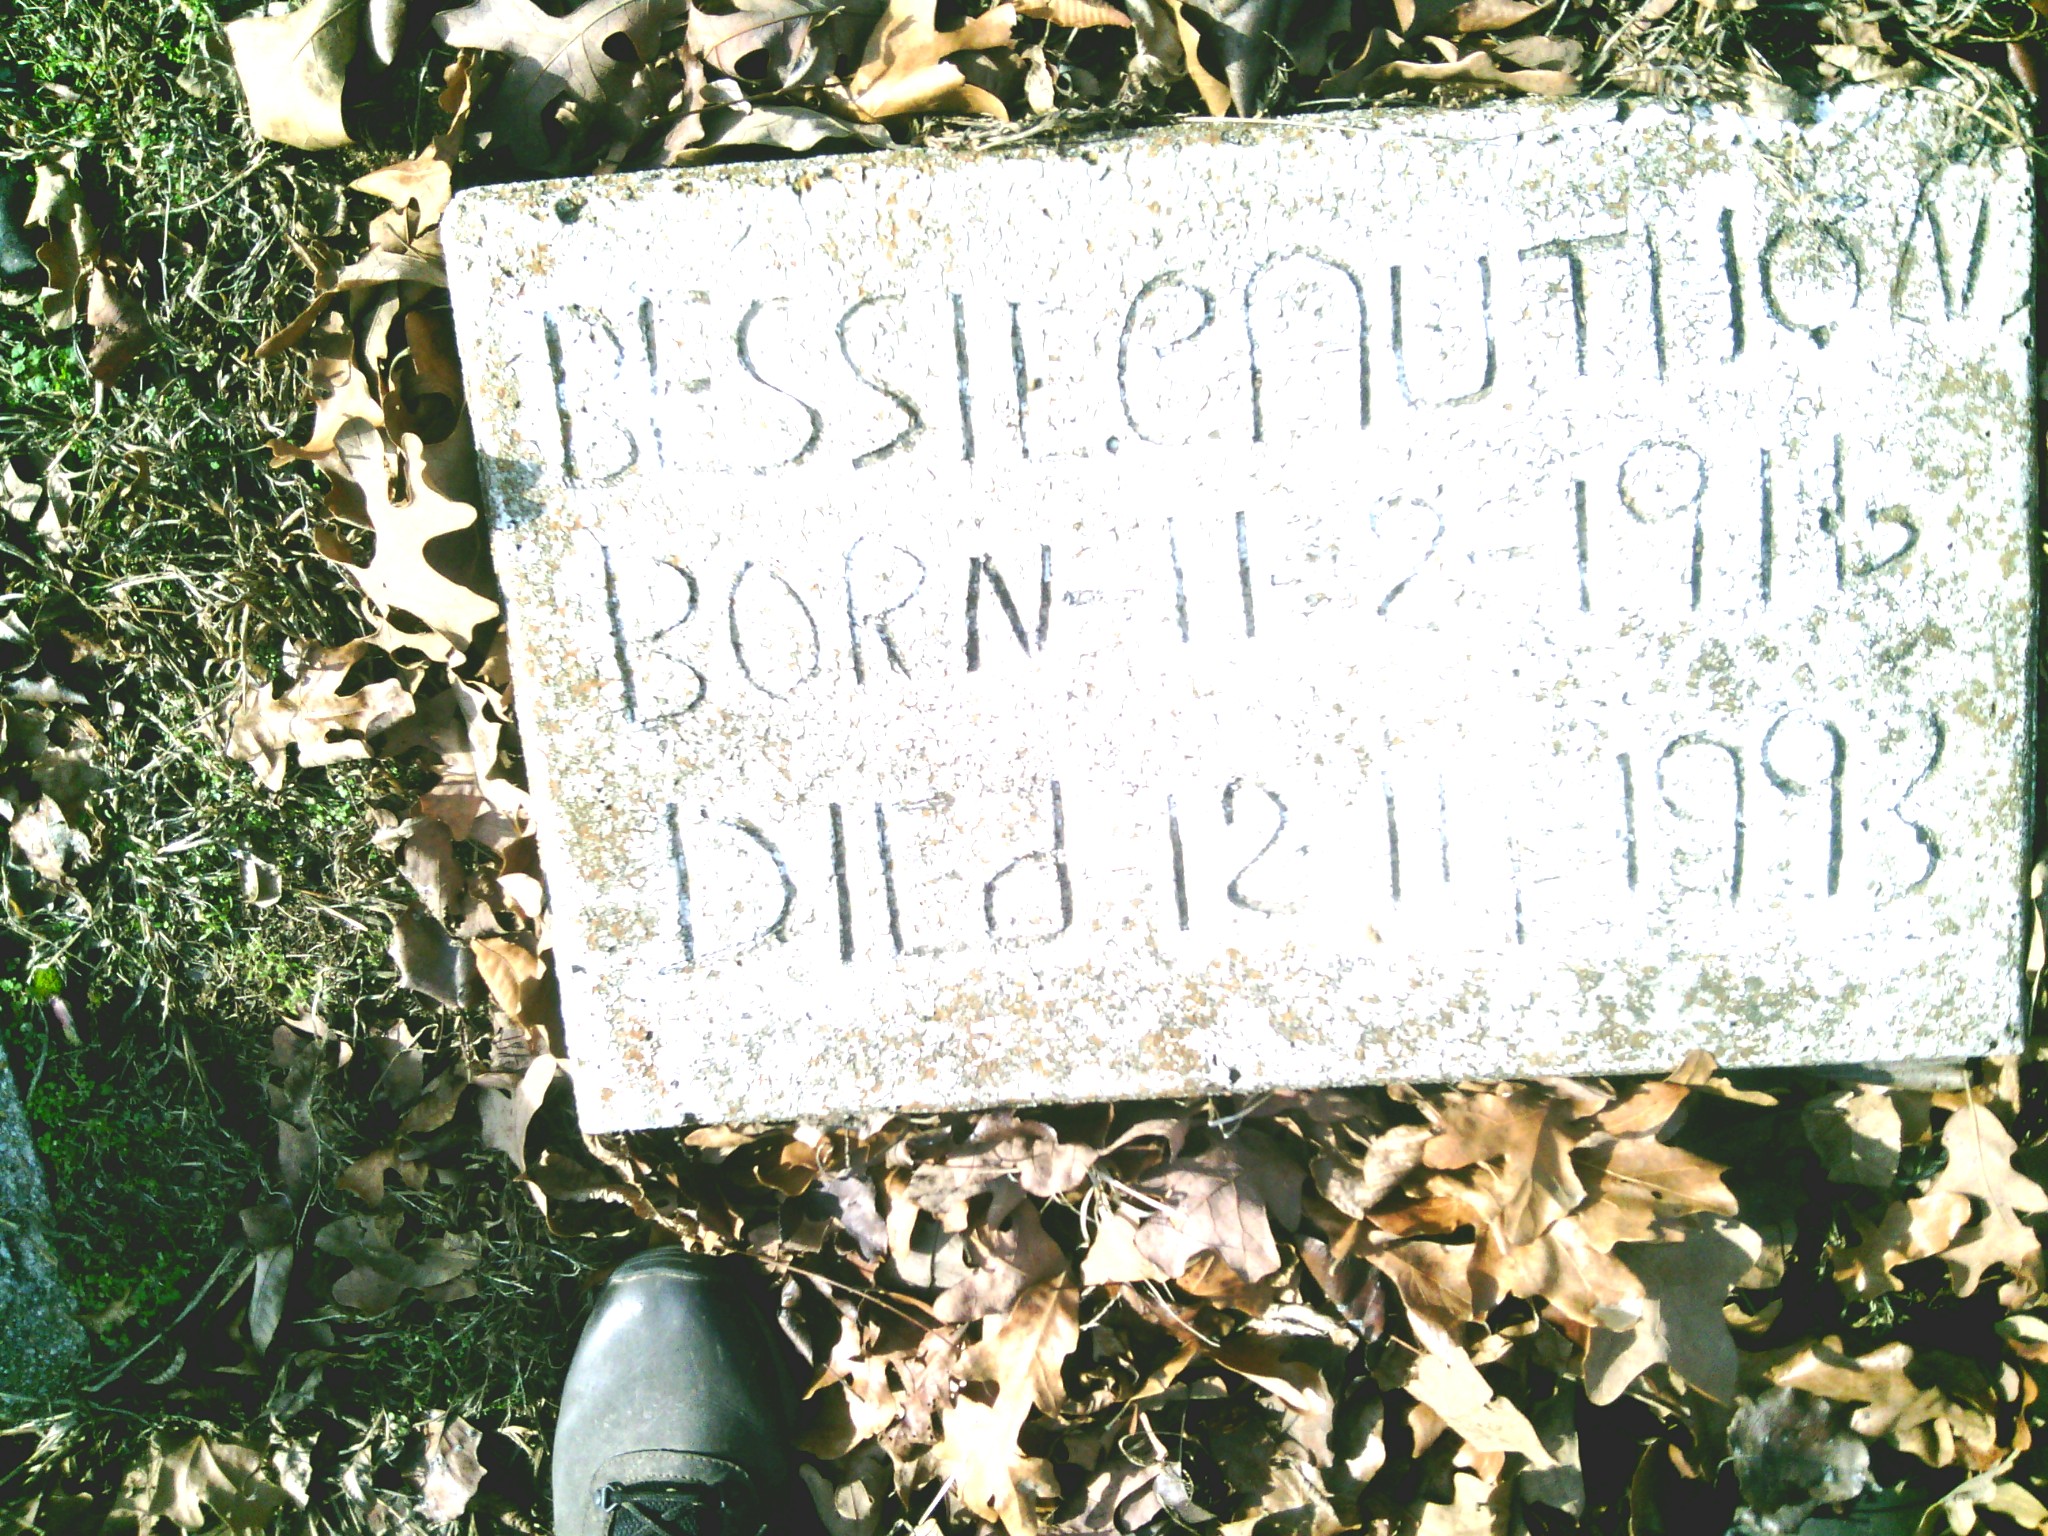 BESSIE.CAUTHON
BORN-11-2-1916
DIEd 12 11-1993